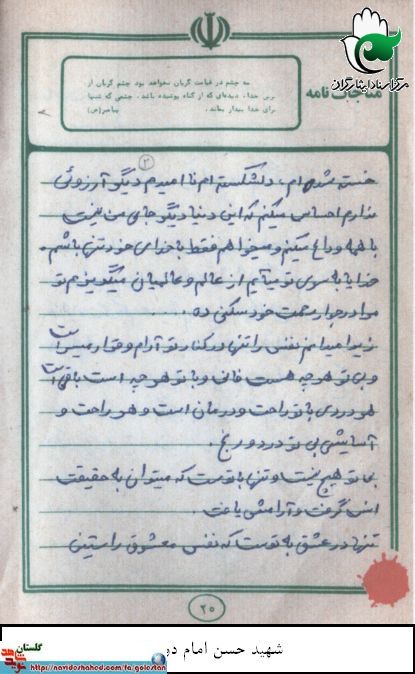 مرکز اسناد ایثارگران
مناجات نامه
سه چشم در قیامت گریان نخواهد بود چشم گریان از
ترس خدا، دیده‌ای که از گناه پوشیده باشد، چشمی که شبها
برای خدا بیدار بماند. پیامبر(ص)
۲
خسته شده‌ام، دلشکسته‌ام ناامیدم دیگر آرزوئی
ندارم احساس میکنم که این دنیا دیگر جای من نیست
با همه وداع میکنم و میخواهم فقط با خدای خود تنها باشم.
خدایا بسوی تو میآیم از عالم و عالمیان میگریزم تو
مرا در جوار رحمت خود سکنی ده ....
زیرا میدانم نفس را تنها در کنار تو آرام و قرار میسر است
و بی تو هر چه هست فانی و با تو هر چه است باقی است
هر دردی با تو راحت و درمان است و هر راحت و
آسایشی بی تو درد و رنج.
بجز تو هیچ نیست و تنها با توست که میتوان به حقیقت
انس گرفت و آرامش یافت.
تنها در عشق به توست که نفس معشوق راستین
۲۵
شهید حسن امام دو
گلستان
نوید شاهد
https://navideshahed.com/fa/golestan